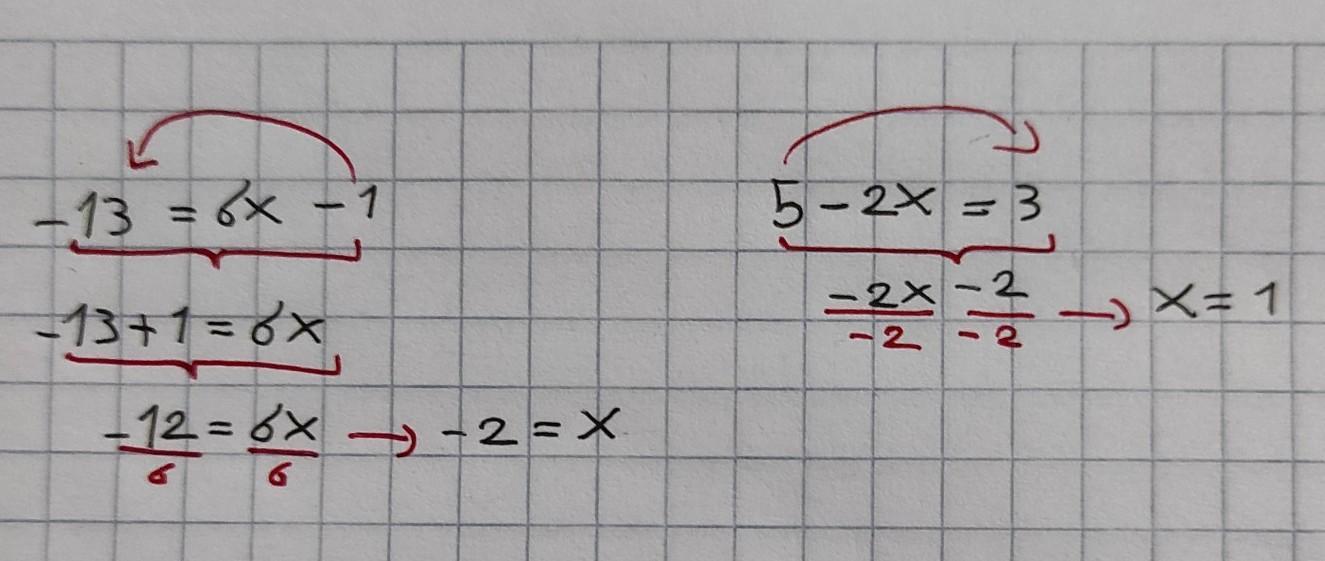 -13 = 6x -1
-13+1 = 6x
-12/6 = 6x/6 → -2 = x
5 - 2x = 3
-2x/-2 -2/-2 → x = 1